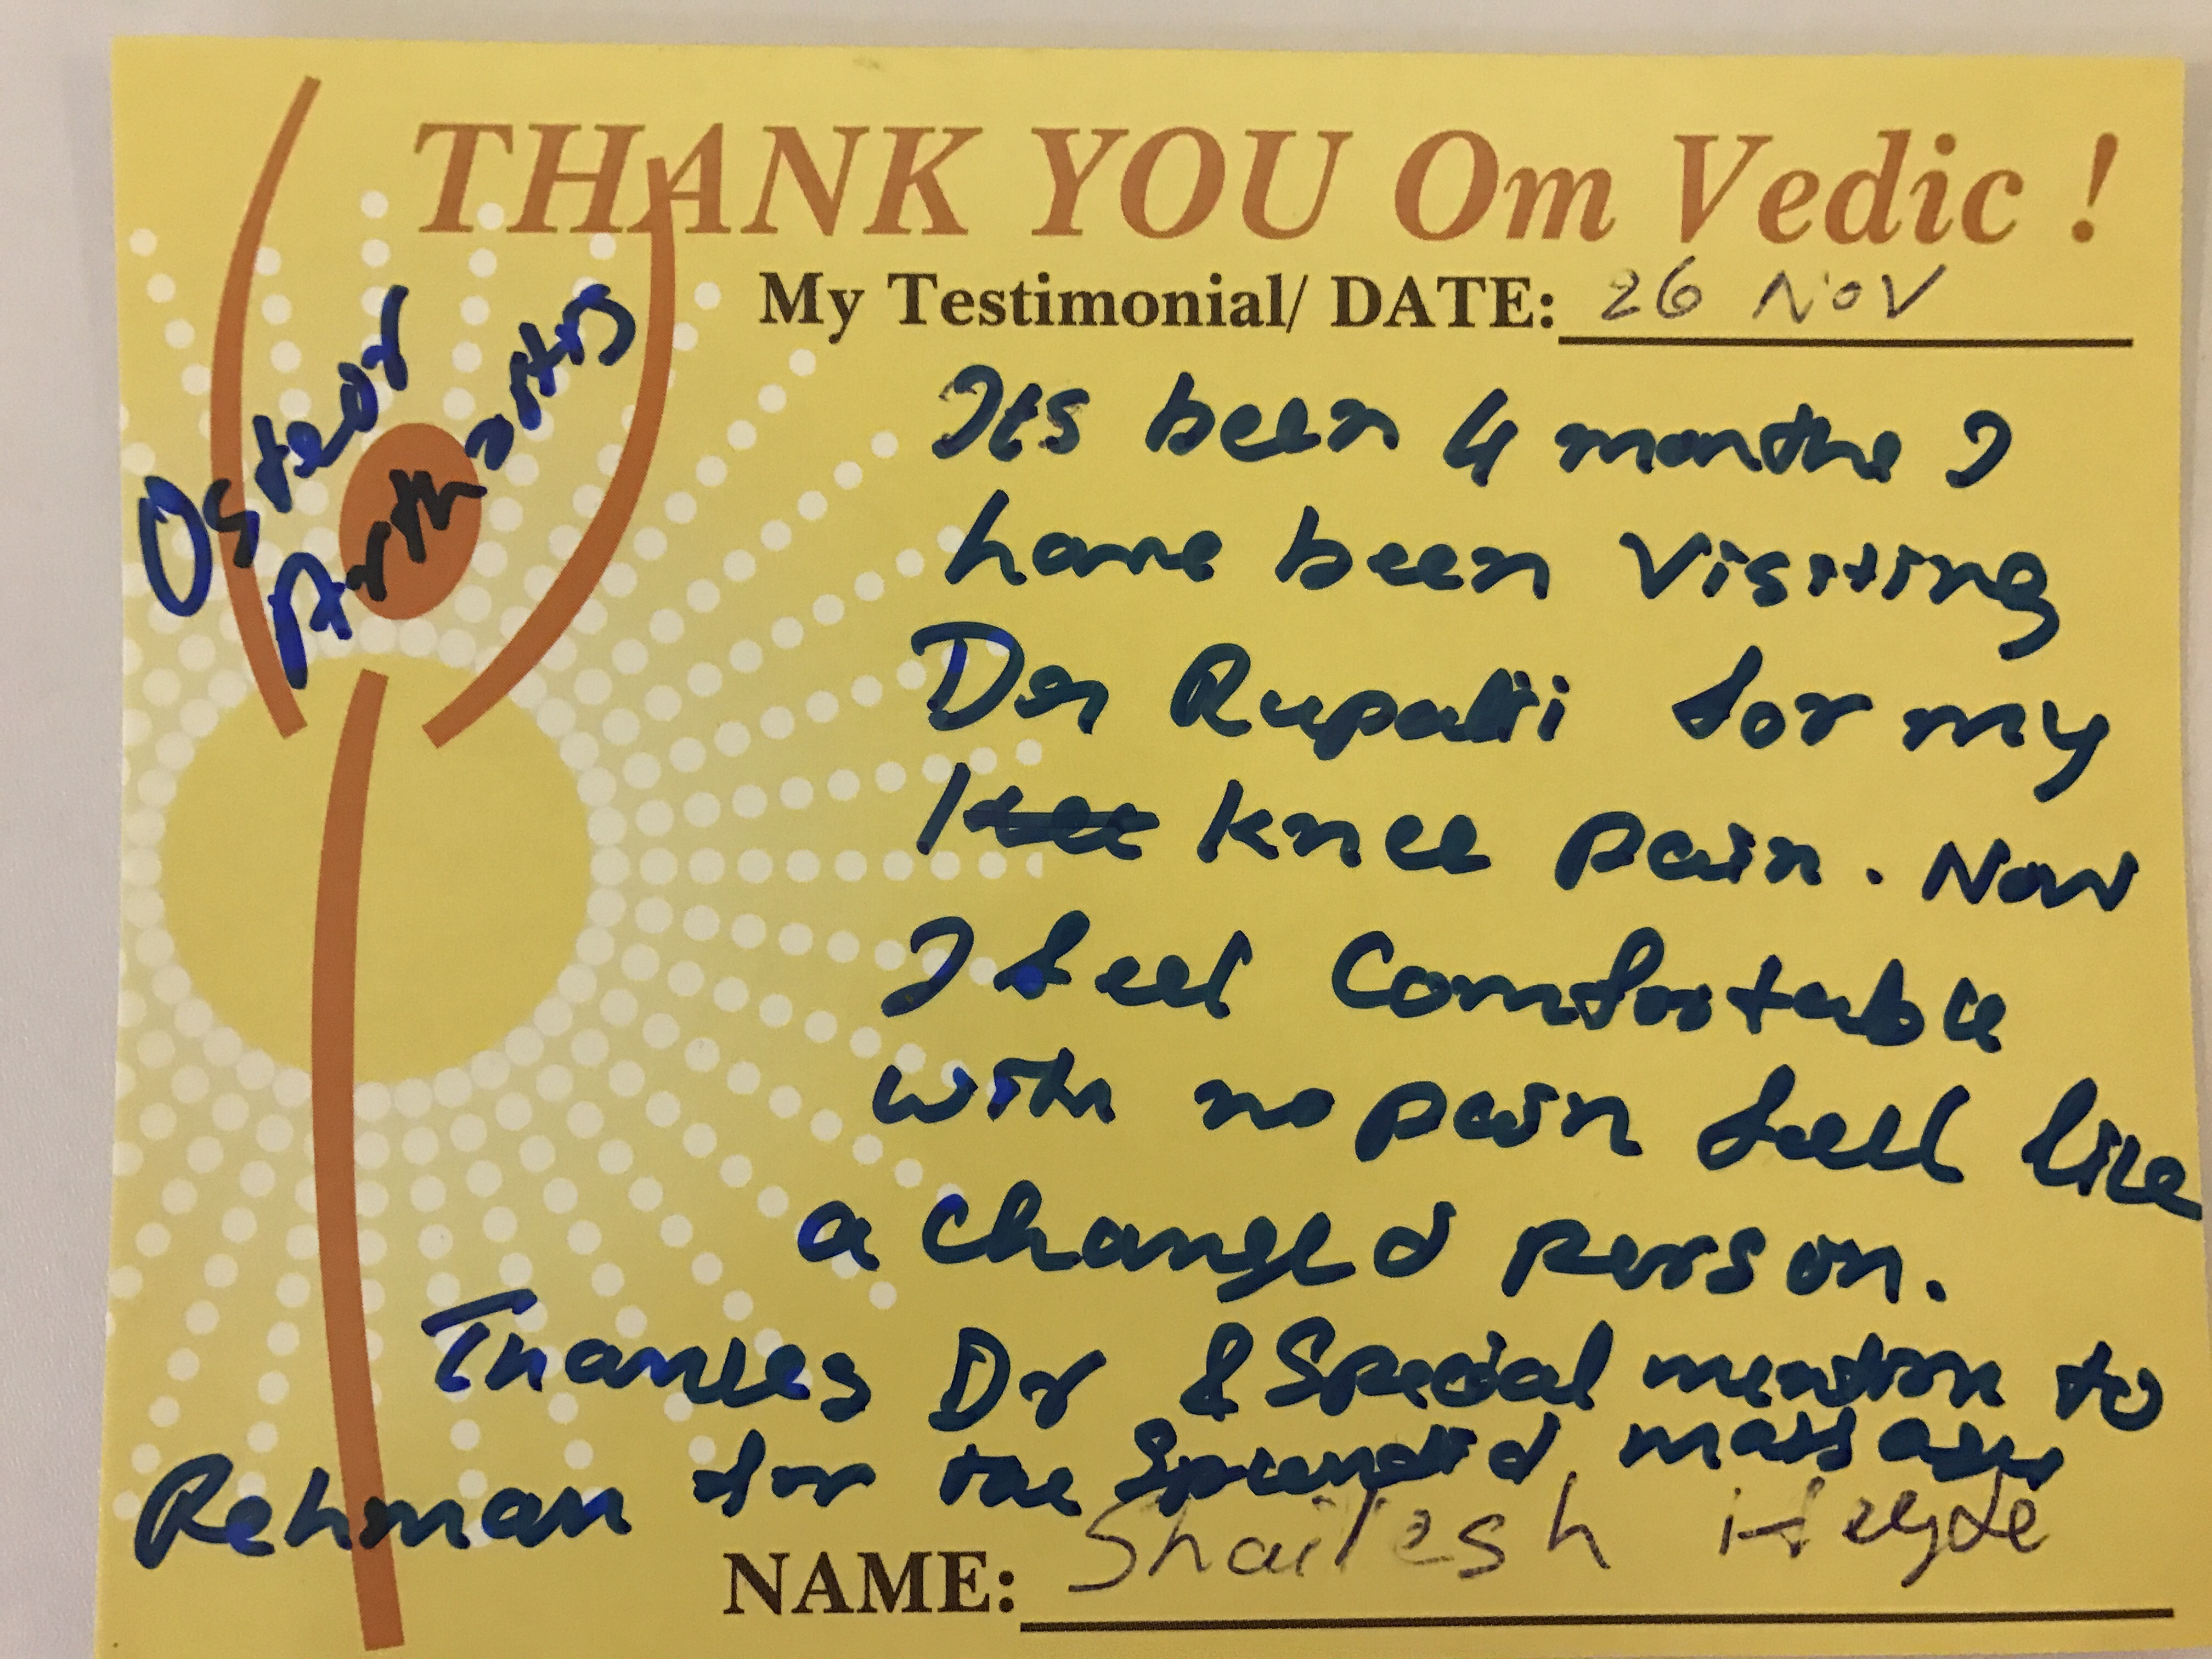 THANK YOU Om Vedic !
My Testimonial/ DATE: 26 NOV
Osteor
Arthritis
Its been 4 months I
have been visiting
Dr Rupali for my
knee pain. Now
I feel Comfortable
with no pain feel like
a changed person.
Thanks Dr & Special mention to
Rehman for the Splendid massage
NAME: Shailesh Hegde